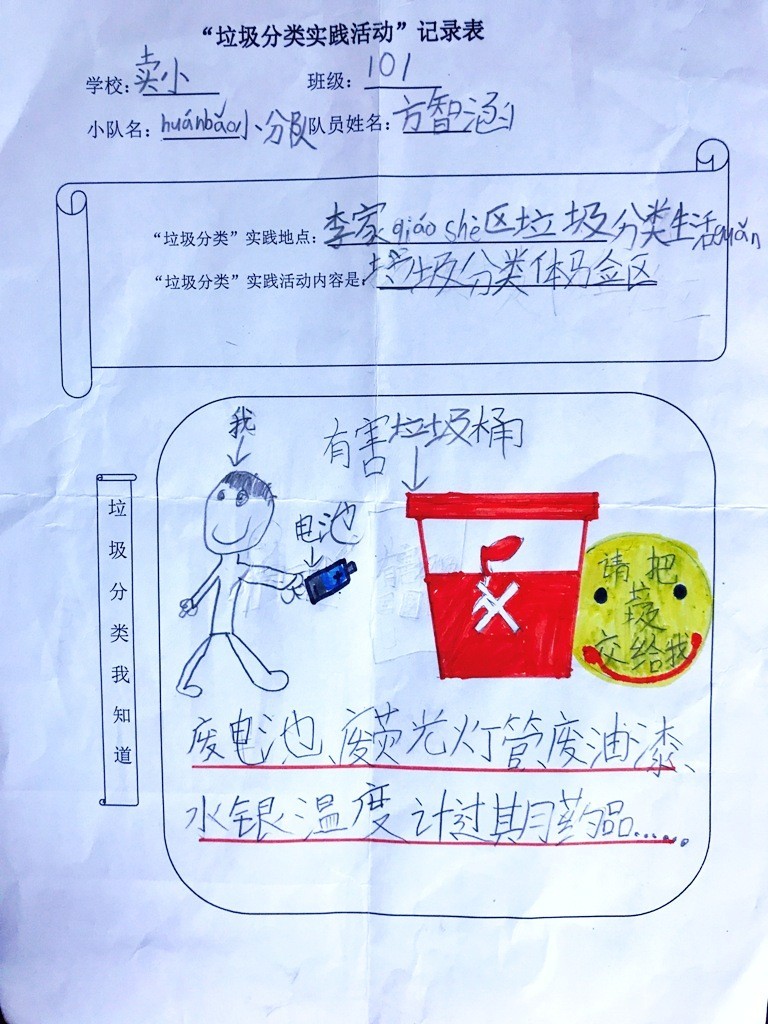 “垃圾分类实践活动”记录表
学校：卖小 班级：101
小队名：huánbǎo小分队 队员姓名：方智涵
“垃圾分类”实践地点：李家qiáo shè区垃圾分类生活guǎn
“垃圾分类”实践活动内容是：垃圾分类体马佥区
我
有害垃圾桶
电池
请把
垃圾
交给我
垃圾分类我知道
废电池、废荧光灯管、废油漆、
水银温度计过期药品......